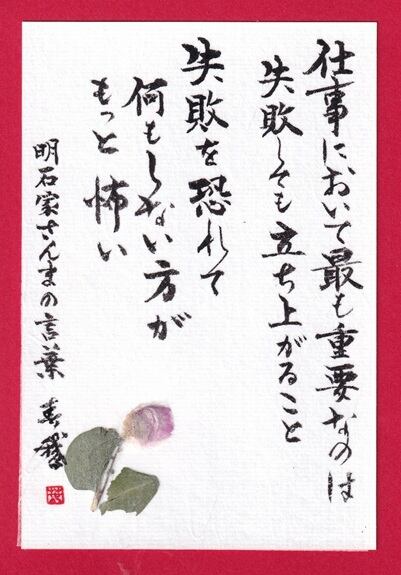 仕事において最も重要なのは
失敗しても立ち上がること
失敗を恐れて
何もしない方が
もっと怖い
明石家さんまの言葉